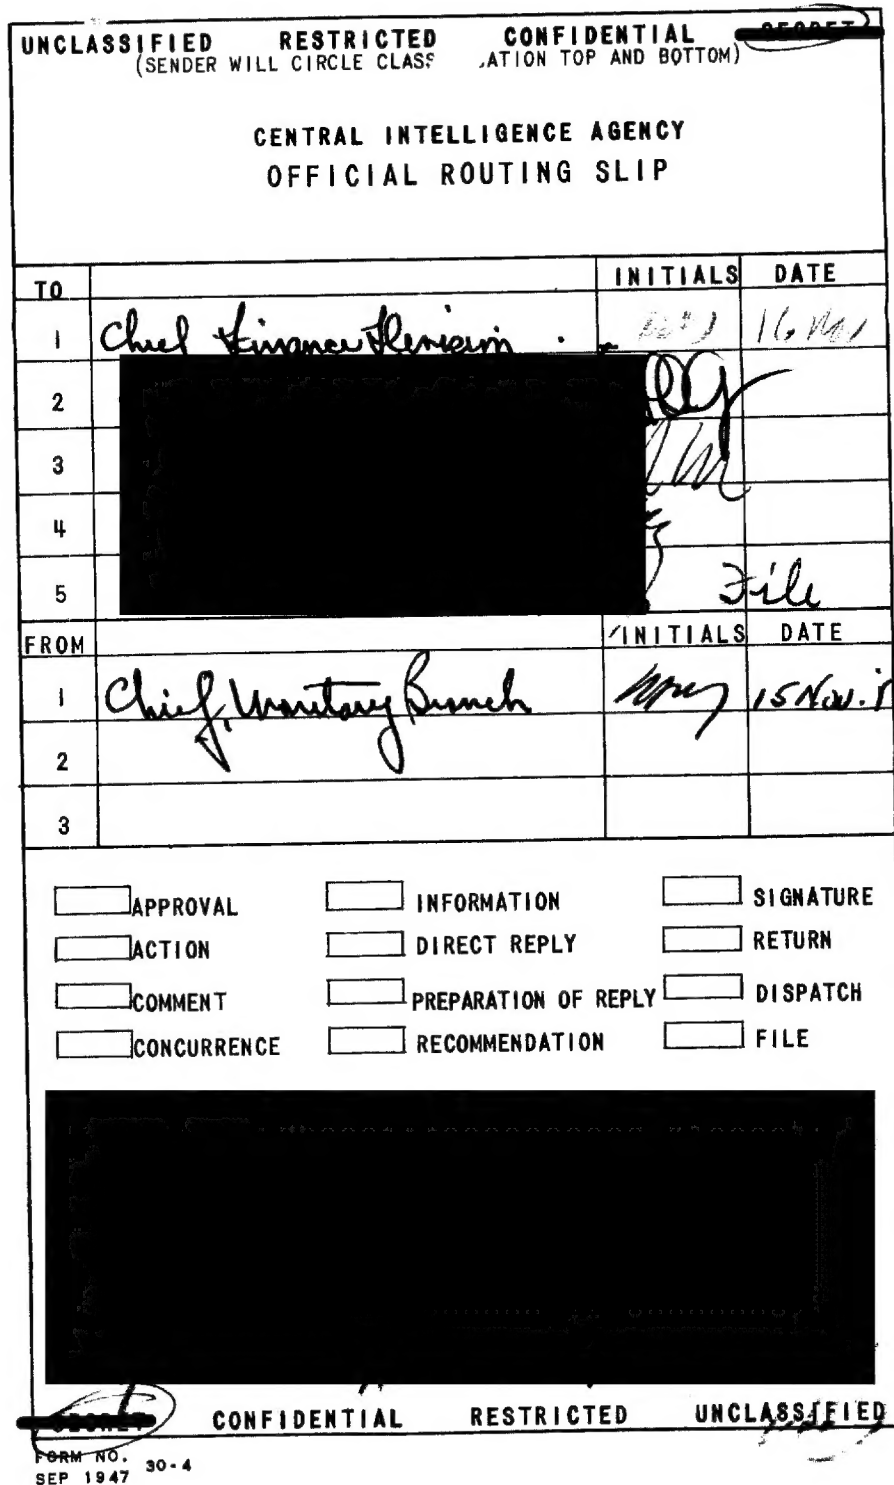 UNCLASSIFIED RESTRICTED CONFIDENTIAL SECRET
(SENDER WILL CIRCLE CLASS ATION TOP AND BOTTOM)
CENTRAL INTELLIGENCE AGENCY
OFFICIAL ROUTING SLIP
TO INITIALS DATE
1 Chief Finance Division 16
2
3
4
5 File
FROM INITIALS DATE
1 Chief, Monetary Branch 15 Nov.
2
3
APPROVAL INFORMATION SIGNATURE
ACTION DIRECT REPLY RETURN
COMMENT PREPARATION OF REPLY DISPATCH
CONCURRENCE RECOMMENDATION FILE
SECRET CONFIDENTIAL RESTRICTED UNCLASSIFIED
FORM NO. 30-4
SEP 1947